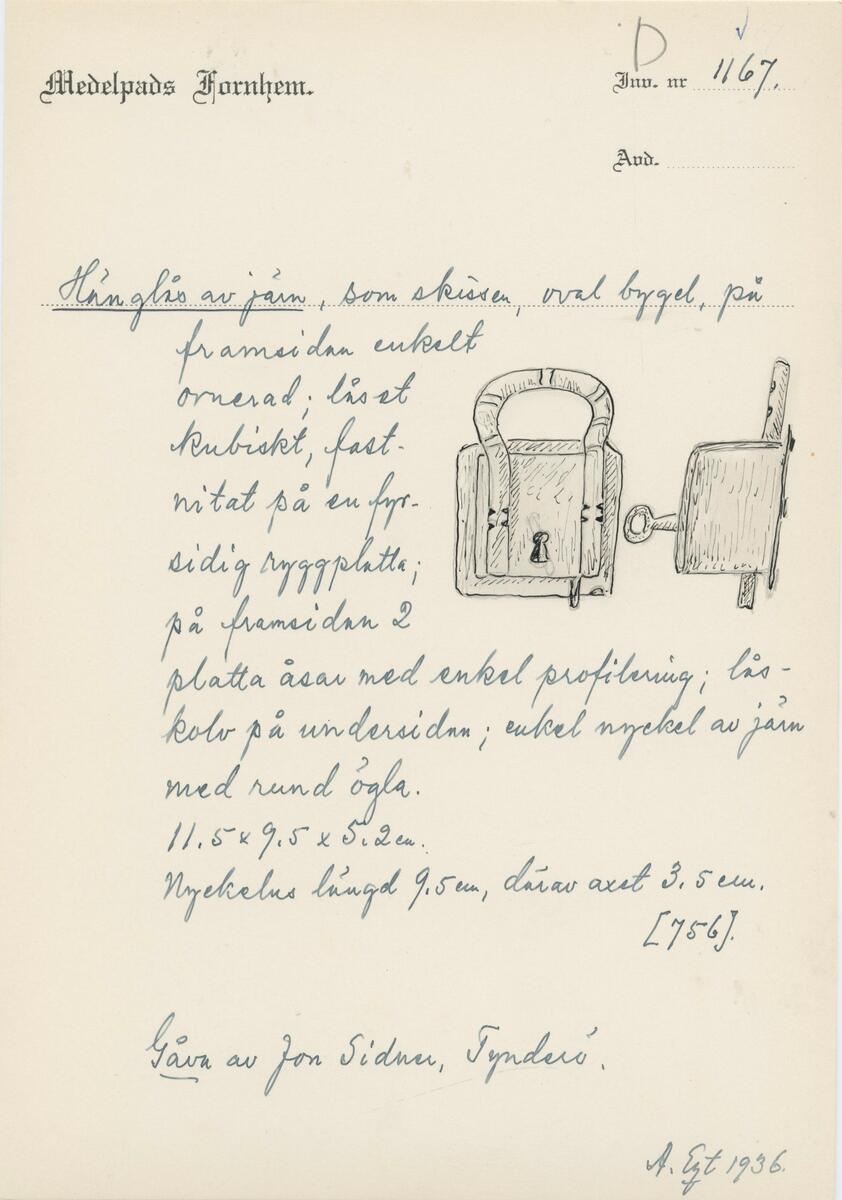 D
Medelpads Fornhem.
Inv. nr 1167.
Avd.
Hänglås av järn, som skissen, oval bygel, på
framsidan enkelt
ornerad; låset
kubiskt, fast-
nitat på en fyr-
sidig ryggplatta;
på framsidan 2
platta åsar med enkel profilering; lås-
kolv på undersidan; enkel nyckel av järn
med rund ögla.
11.5 x 9.5 x 5.2 cm.
Nyckelns längd 9.5 cm, därav axet 3.5 cm.
[756].
Gåva av Jon Sidner, Tynderö.
A. 1936.